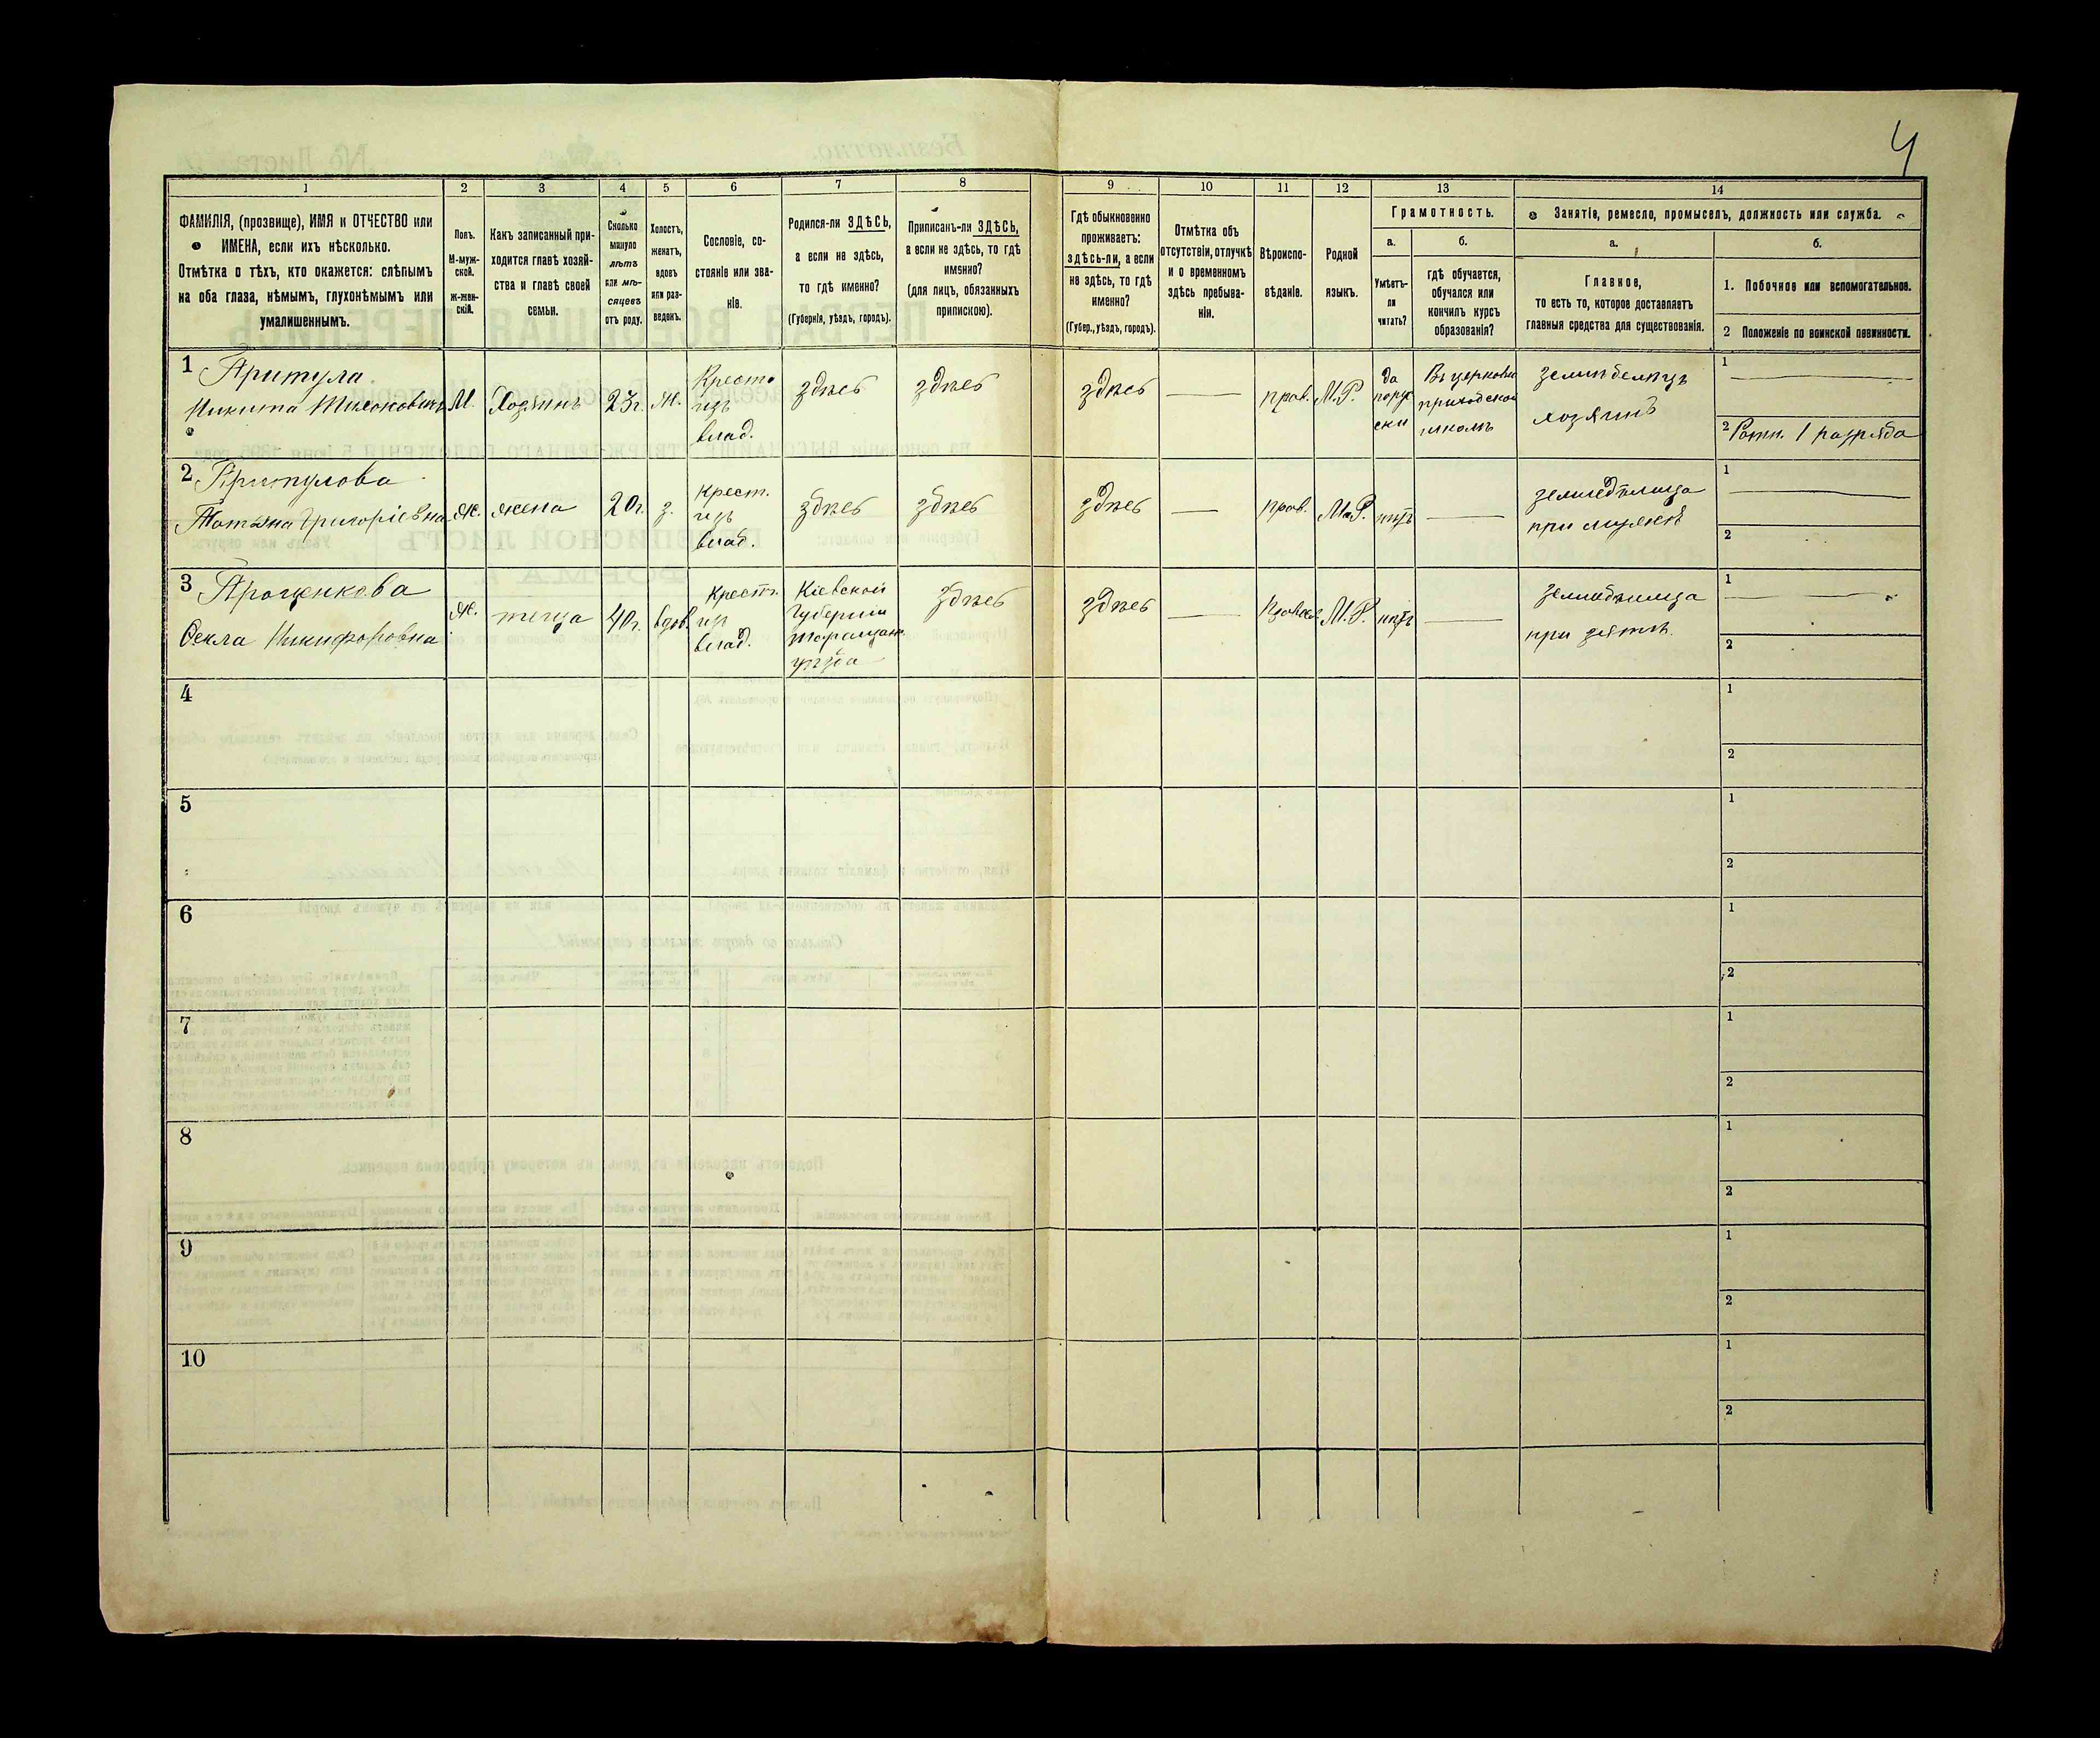 4
1 2 3 4 5 6 7 8 9 10 11 12 13 14
ФАМИЛІЯ, (прозвище), ИМЯ и ОТЧЕСТВО или
ИМЕНА, если ихъ нѣсколько.
Отмѣтка о тѣхъ, кто окажется: слѣпымъ
на оба глаза, нѣмымъ, глухонѣмымъ или
умалишеннымъ.
Полъ.
М-муж-
ской.
ж-жен-
скій.
Какъ записанный при-
ходится главѣ хозяй-
ства и главѣ своей
семьи.
Сколько
минуло
лѣтъ
или мѣ-
сяцевъ
отъ роду.
Холостъ,
женатъ,
вдовъ
или раз-
веденъ.
Сословіе, со-
стояніе или зва-
ніе.
Родился-ли ЗДѢСЬ,
а если не здѣсь,
то гдѣ именно?
(Губернія, уѣздъ, городъ).
Приписанъ-ли ЗДѢСЬ,
а если не здѣсь, то гдѣ
именно?
(для лицъ, обязанныхъ
припискою).
Гдѣ обыкновенно
проживаетъ:
здѣсь-ли, а если
не здѣсь, то гдѣ
именно?
(Губер., уѣздъ, городъ).
Отмѣтка объ
отсутствіи, отлучкѣ
и о временномъ
здѣсь пребыва-
ніи.
Вѣроиспо-
вѣданіе.
Родной
языкъ.
Грамотность.
а.
Умѣетъ-
ли
читать?
б.
гдѣ обучается,
обучался или
кончилъ курсъ
образованія?
Занятіе, ремесло, промыселъ, должность или служба.
а.
Главное,
то есть то, которое доставляетъ
главныя средства для существованія.
б.
1. Побочное или вспомогательное.
2 Положеніе по воинской повинности.
1 Притула
Никита
М.
Хозяинъ
23г.
Ж.
Крест.
изъ
влад.
здѣсь
здѣсь
здѣсь
прав.
М.Р.
да
по рус
ски
Въ церковно
приходской
школѣ
хозяинъ
1
2 Ратн. 1 разряда
2 Притулова
Татьяна Григоріевна
Ж.
жена
20г.
з.
Крест.
изъ
влад.
здѣсь
здѣсь
здѣсь
прав.
М.Р.
нѣтъ
земледѣлица
при мужѣ
1
2
3 Проценкова
Секла Никифоровна
Ж.
теща
40г.
вдов.
Крест.
изъ
влад.
Кіевской
Губерніи
Таращан.
уѣзда
здѣсь
здѣсь
М.Р.
нѣтъ
земледѣлица
при зятѣ.
1
2
4
1
2
5
1
2
6
1
2
7
1
2
8
1
2
9
1
2
10
1
2